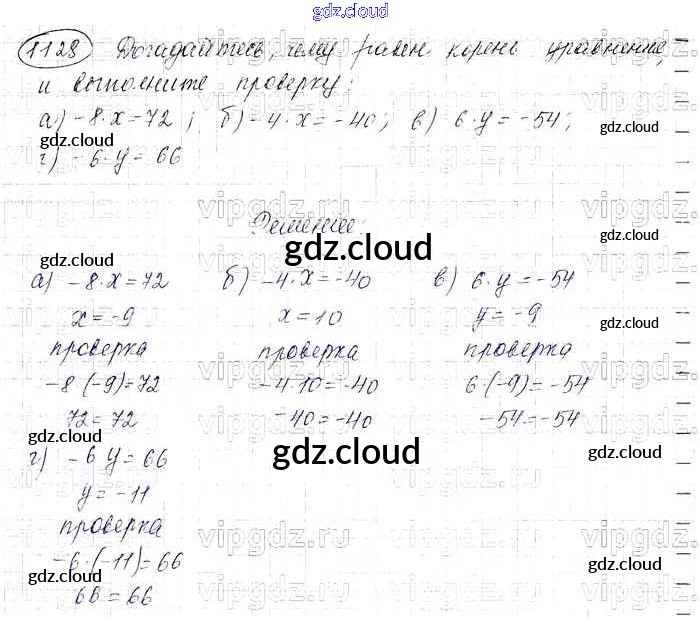 gdz.cloud
1128 Догадайтесь, чему равен корень уравнение,
и выполните проверку:
а) -8·x=-72; б) -4·x=-40; в) 6·y=-54;
gdz.cloud gdz.cloud gdz.cloud
г) -6·y=66
vipgdz.ru vipgdz.ru vipgdz.
Решение:
gdz.cloud
а) -8·x=72 б) -4·x=-40 в) 6·y=-54
x=-9 x=10 y=-9
gdz.cloud
проверка проверка проверка
-8·(-9)=72 -4·10=-40 6·(-9)=-54
72=72 -40=-40 -54=-54
gdz.cloud gdz.cloud gdz.cloud
г) -6 y=66
y=-11
проверка
-6·(-11)=66
gdz.cloud gdz.cloud gdz.cloud
66=66